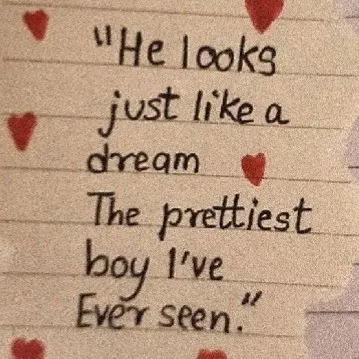 "He looks
just like a
dream
The prettiest
boy I've
Ever seen."